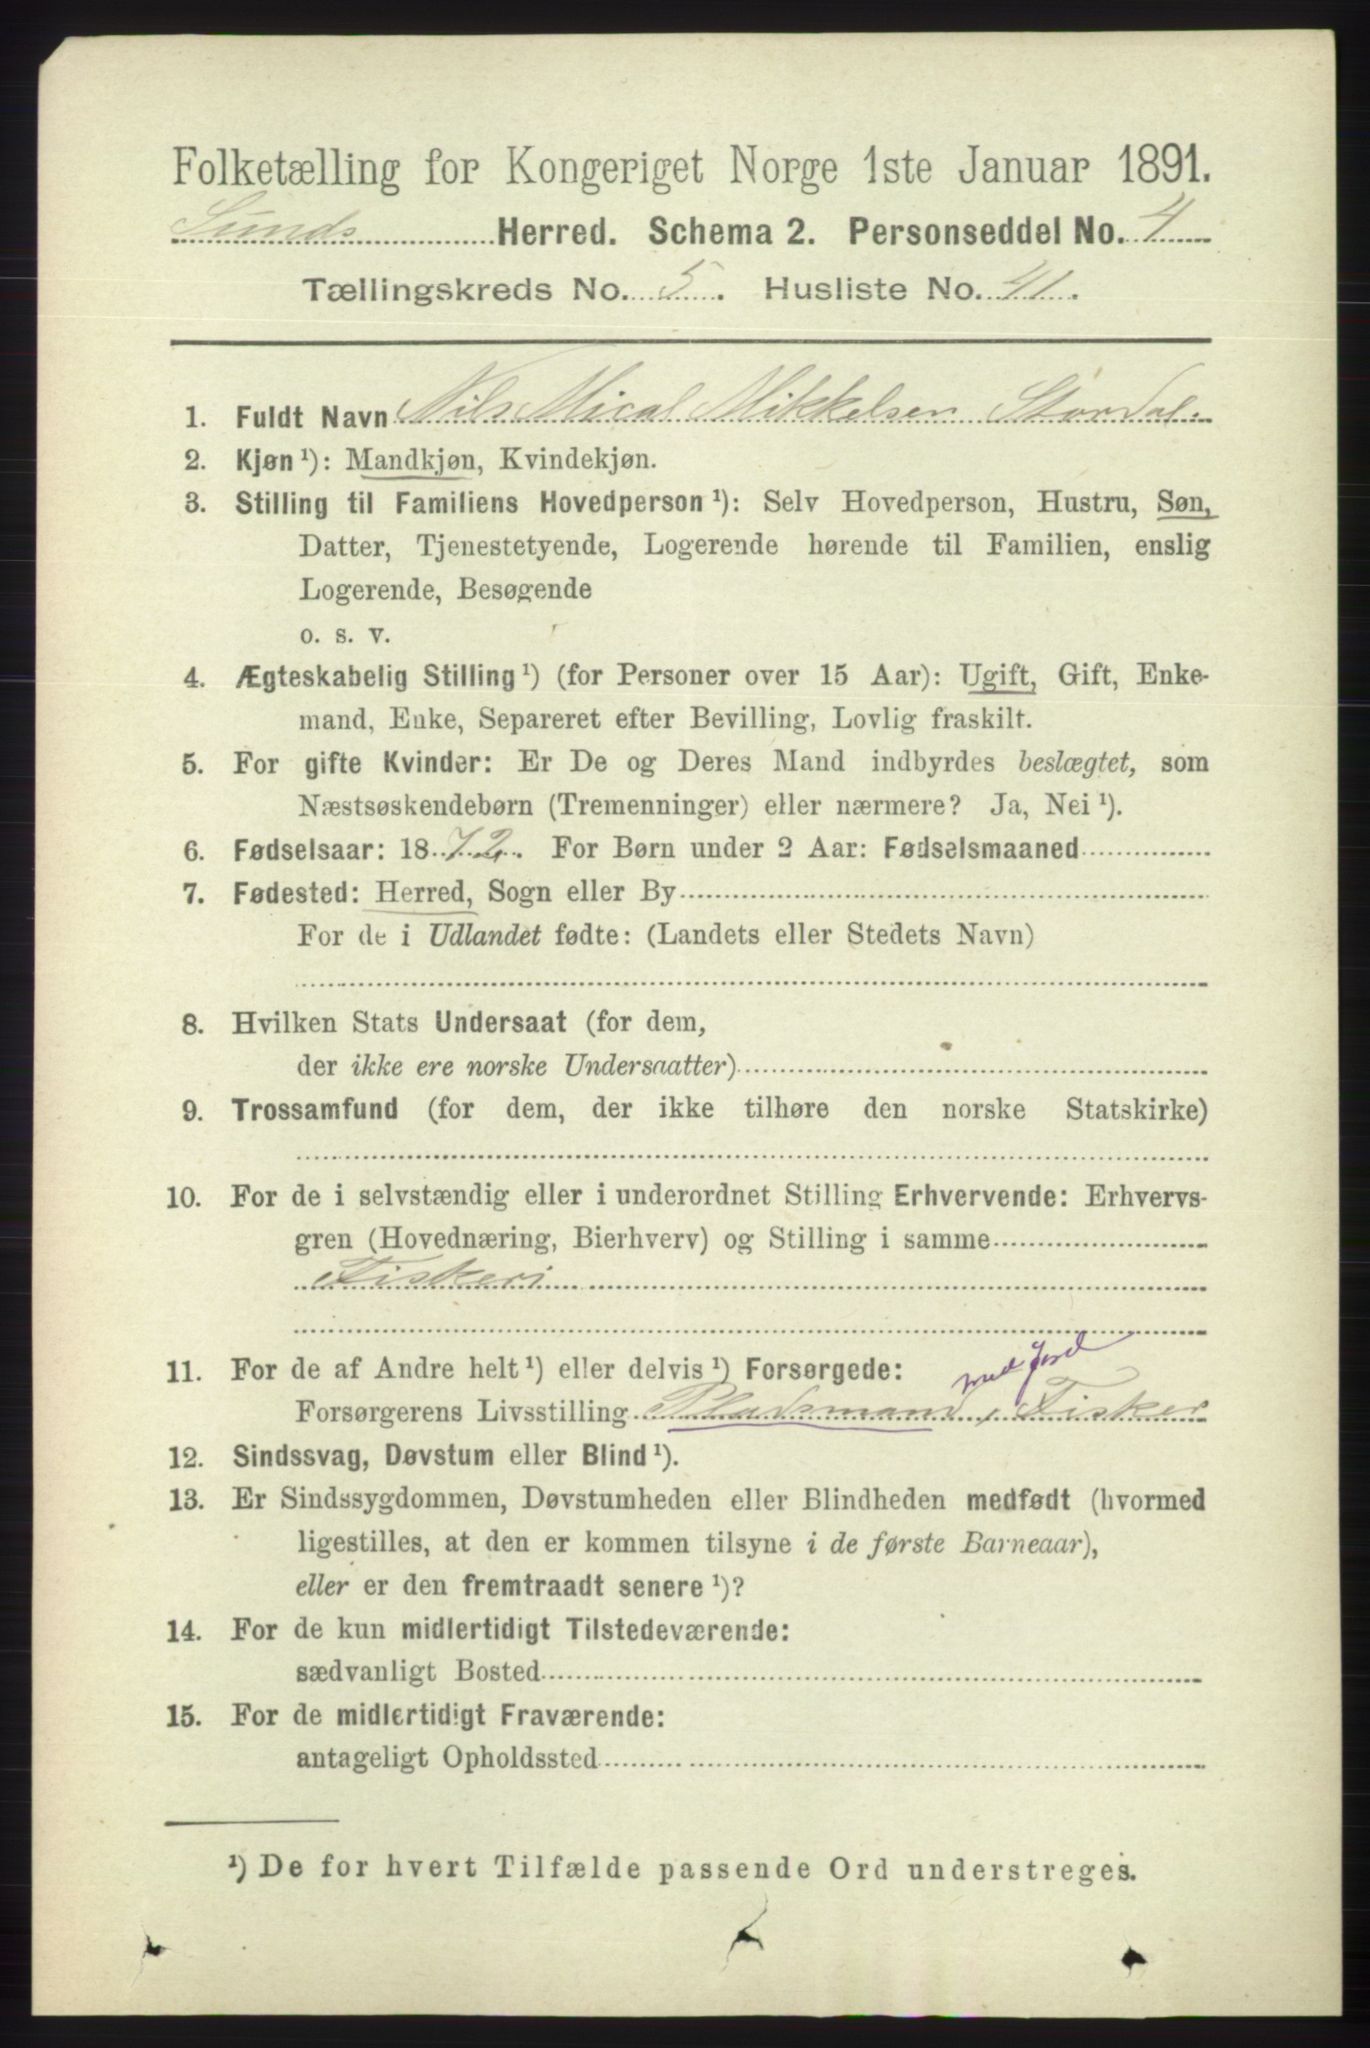 Folketælling for Kongeriget Norge 1ste Januar 1891.
Sunds Herred. Schema 2. Personseddel No. 4
Tællingskreds No. 5. Husliste No. 41.
1. Fuldt Navn Nils Mical Mikkelsen Stordal.
2. Kjøn ¹): Mandkjøn, Kvindekjøn.
3. Stilling til Familiens Hovedperson ¹): Selv Hovedperson, Hustru, Søn,
Datter, Tjenestetyende, Logerende hørende til Familien, enslig
Logerende, Besøgende
o. s. v.
4. Ægteskabelig Stilling ¹) (for Personer over 15 Aar): Ugift, Gift, Enke-
mand, Enke, Separeret efter Bevilling, Lovlig fraskilt.
5. For gifte Kvinder: Er De og Deres Mand indbyrdes beslægtet, som
Næstsøskendebørn (Tremenninger) eller nærmere? Ja, Nei ¹).
6. Fødselsaar: 1872. For Børn under 2 Aar: Fødselsmaaned
7. Fødested: Herred, Sogn eller By
For de i Udlandet fødte: (Landets eller Stedets Navn)
8. Hvilken Stats Undersaat (for dem,
der ikke ere norske Undersaatter)
9. Trossamfund (for dem, der ikke tilhøre den norske Statskirke)
10. For de i selvstændig eller i underordnet Stilling Erhvervende: Erhvervs-
gren (Hovednæring, Bierhverv) og Stilling i samme
Fiskeri
11. For de af Andre helt ¹) eller delvis ¹) Forsørgede:
med Jord
Forsørgerens Livsstilling Pladsmand, Fisker
12. Sindssvag, Døvstum eller Blind ¹).
13. Er Sindssygdommen, Døvstumheden eller Blindheden medfødt (hvormed
ligestilles, at den er kommen tilsyne i de første Barneaar),
eller er den fremtraadt senere ¹)?
14. For de kun midlertidigt Tilstedeværende:
sædvanligt Bosted
15. For de midlertidigt Fraværende:
antageligt Opholdssted
¹) De for hvert Tilfælde passende Ord understreges.